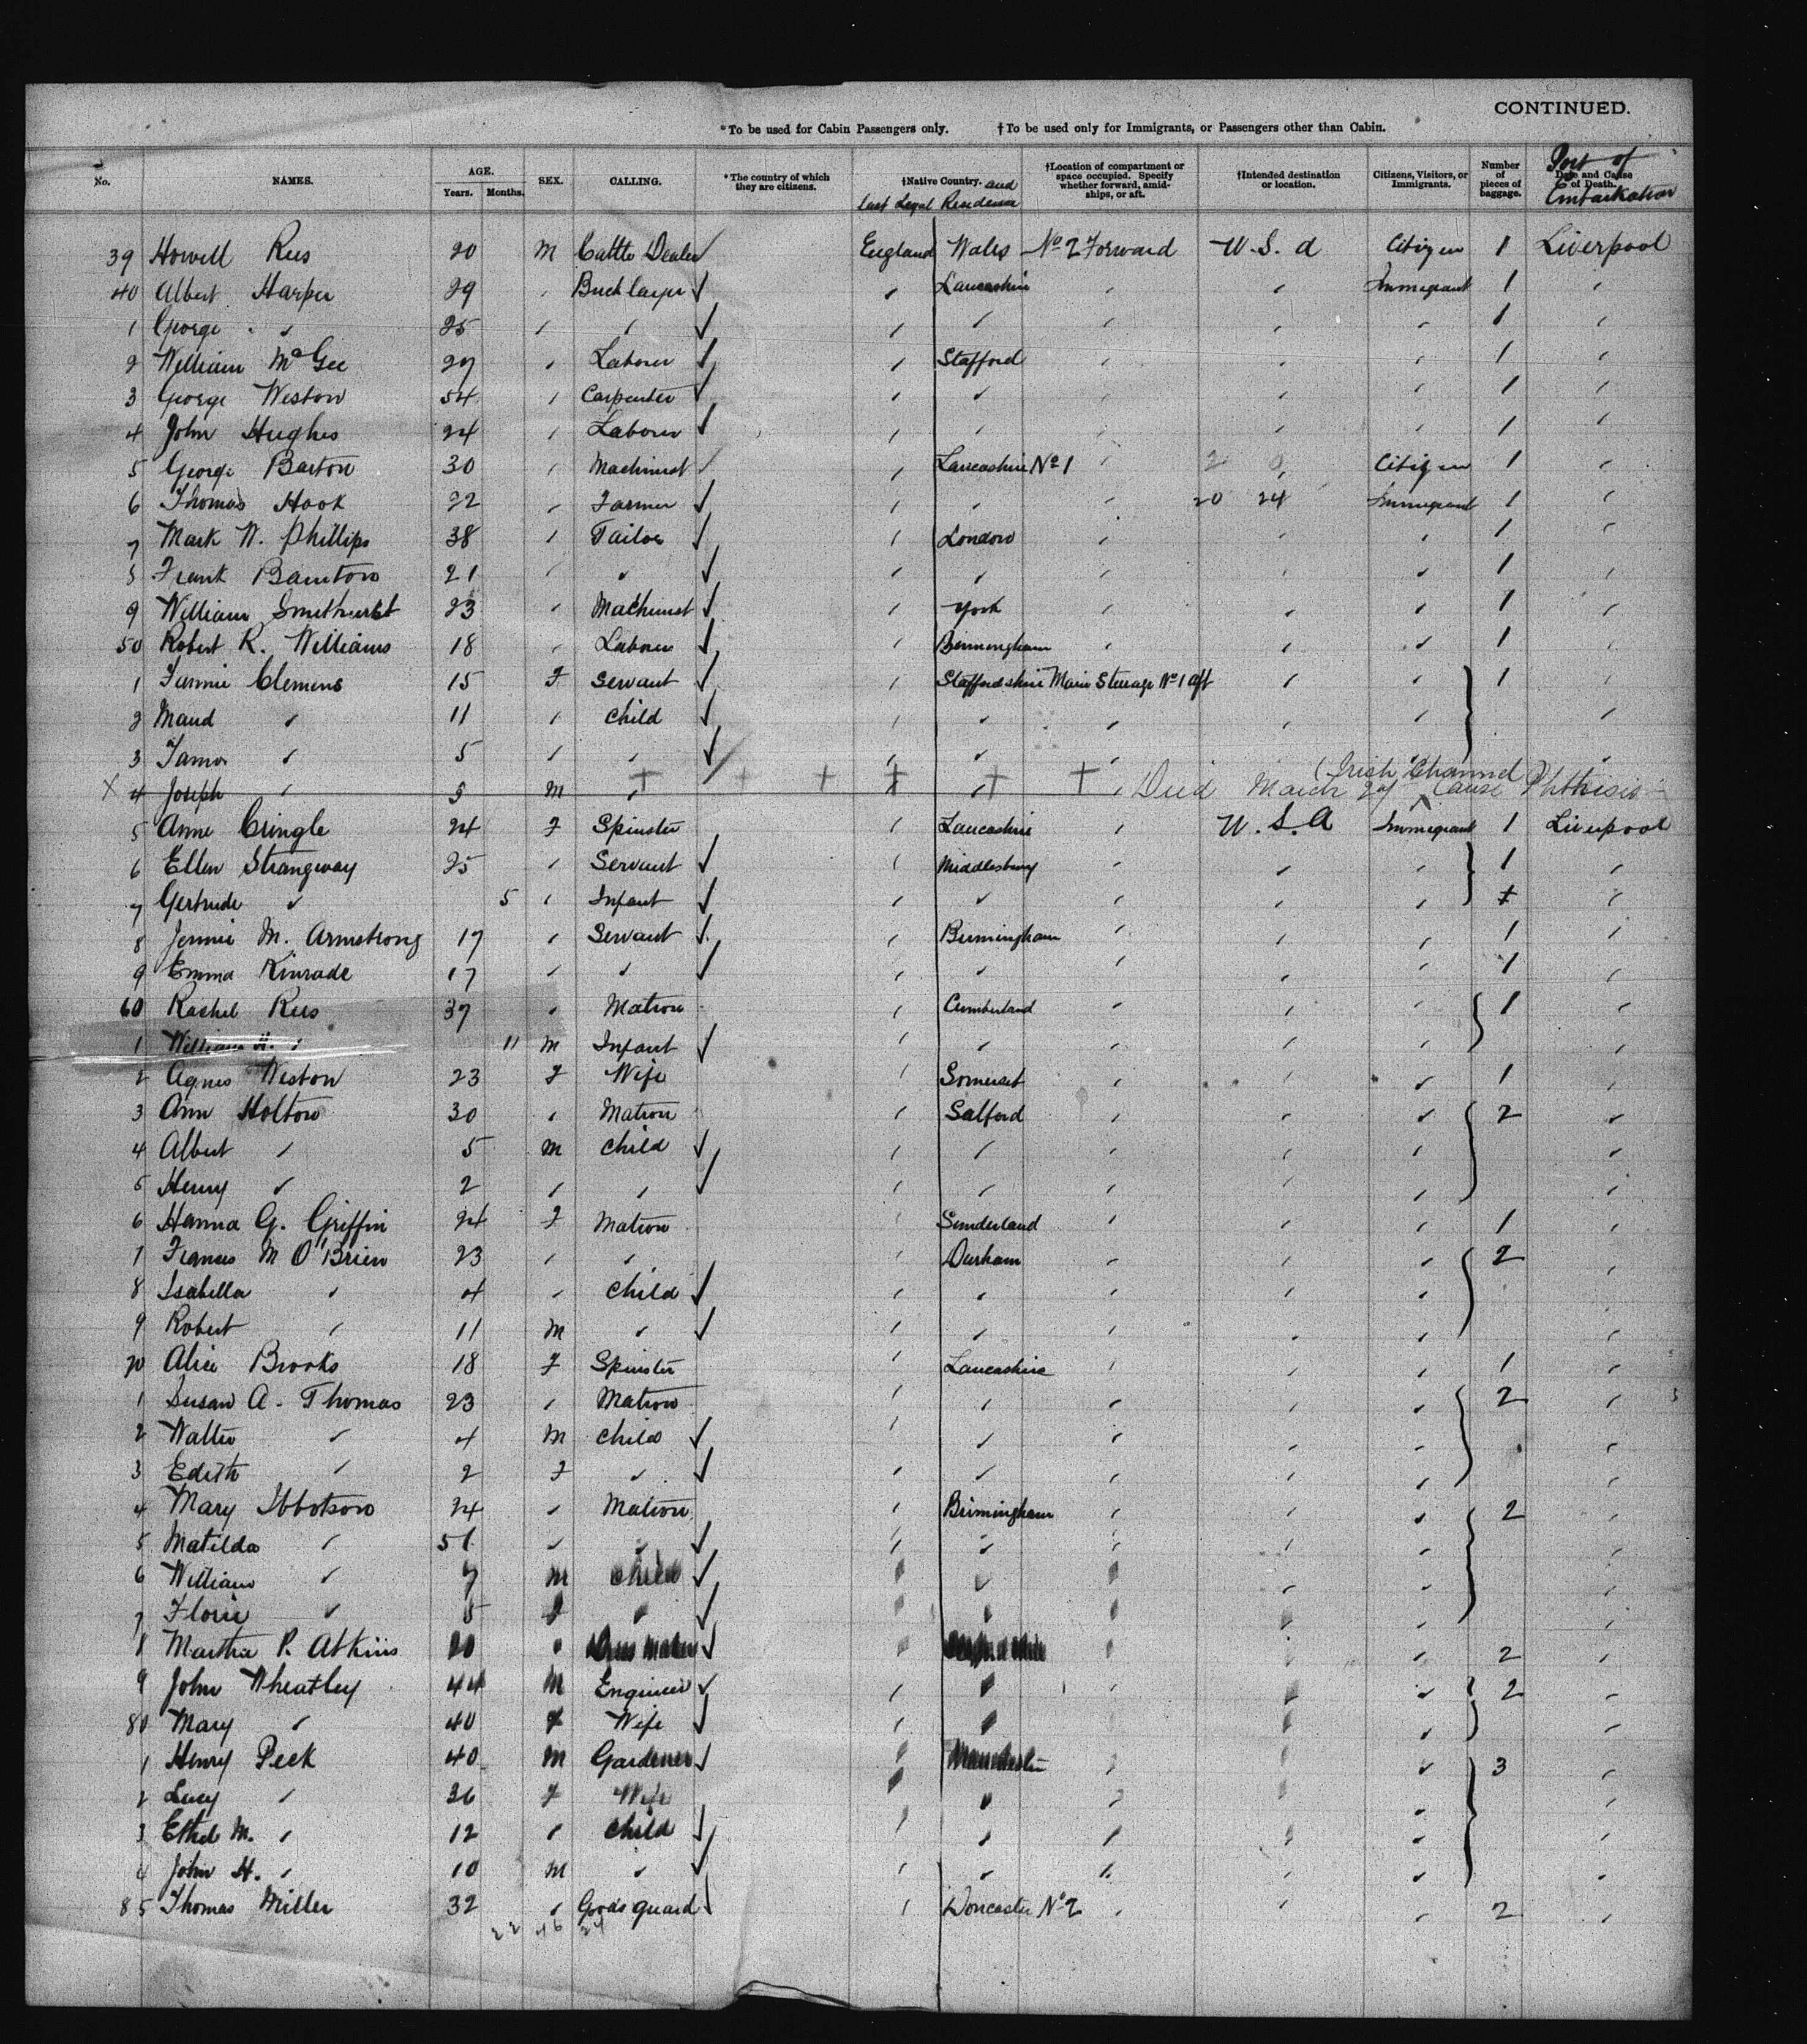 CONTINUED.
*To be used for Cabin Passengers only. †To be used only for Immigrants, or Passengers other than Cabin.
No. NAMES. AGE. Years. Months. SEX. CALLING. *The country of which they are citizens. †Native Country. and last Legal Residence †Location of compartment or space occupied. Specify whether forward, amidships, or aft. †Intended destination or location. Citizens, Visitors, or Immigrants. Number of pieces of baggage. Date and Cause of Death. Port of Embarkation
39 Howell Rees 20 M Cattle Dealer England Wales No 2 Forward U.S.A Citizen 1 Liverpool
40 Albert Harper 29 " Bricklayer " Lancashire " " Immigrant 1 "
1 George " 25 " " " " " " " 1 "
2 William McGee 27 " Laborer " Stafford " " " 1 "
3 George Weston 54 " Carpenter " " " " " 1 "
4 John Hughes 24 " Laborer " " " " " 1 "
5 George Barton 30 " Machinist " Lancashire No 1 " " Citizen 1 "
6 Thomas Hook 22 " Farmer " " " 20 24 Immigrant 1 "
7 Mark W. Phillips 38 " Tailor " London " " " 1 "
8 Frank 21 " " " " " " " 1 "
9 William Smithurst 23 " Machinist " York " " " 1 "
50 Robert R. Williams 18 " Laborer " Birmingham " " " 1 "
1 Fannie Clemens 15 F Servant " Staffordshire Main Steerage No 1 aft " " 1 "
2 Maud " 11 " Child " " " " " "
3 " 5 " " " " " " " "
4 Joseph " M " " " Died March 27 (Irish Channel) Cause Phthisis
5 Anne Cringle 24 F Spinster " Lancashire " U.S.A Immigrant 1 Liverpool
6 Ellen Strangway 25 " Servant " " " " 1 "
7 Gertrude " 5 " Infant " " " " " "
8 Jennie M. Armstrong 17 " Servant " Birmingham " " " 1 "
9 Emma Kinrade 17 " " " " " " " 1 "
60 Rachel Rees 37 " Matron " Cumberland " " " 1 "
1 William H. " 11 M Infant " " " " " "
2 Agnes Weston 23 F Wife " Somerset " " " 1 "
3 Ann Holton 30 " Matron " Salford " " " 2 "
4 Albert " 5 M Child " " " " " "
5 Henry " 2 " " " " " " " "
6 Hanna G. Griffin 24 F Matron " Sunderland " " " 1 "
7 Frances M O'Brien 23 " " " Durham " " " 2 "
8 Isabella " 4 " Child " " " " " "
9 Robert " 11 M " " " " " " "
70 Alice Brooks 18 F Spinster " Lancashire " " " 1 "
1 Susan A. Thomas 23 " Matron " " " " " 2 "
2 Walter " 4 M Child " " " " " "
3 Edith " 2 F " " " " " " "
4 Mary Ibbotson 24 " Matron " Birmingham " " " 2 "
5 Matilda " 51 " " " " " " " "
6 William " 7 M Child " " " " " "
7 Florie " 5 F " " " " " " "
8 Martha P. Atkins 20 " Dress Maker " " " " 2 "
9 John Wheatley 44 M Engineer " " " " " 2 "
80 Mary " 40 F Wife " " " " " "
1 Henry Peck 40 M Gardener " Manchester " " " 3 "
2 Lucy " 36 F Wife " " " " " "
3 Ethel M. " 12 " Child " " " " " "
4 John H. " 10 M " " " " " " "
85 Thomas Miller 32 " Goods guard " Doncaster No 2 " " " 2 "
22 46 24